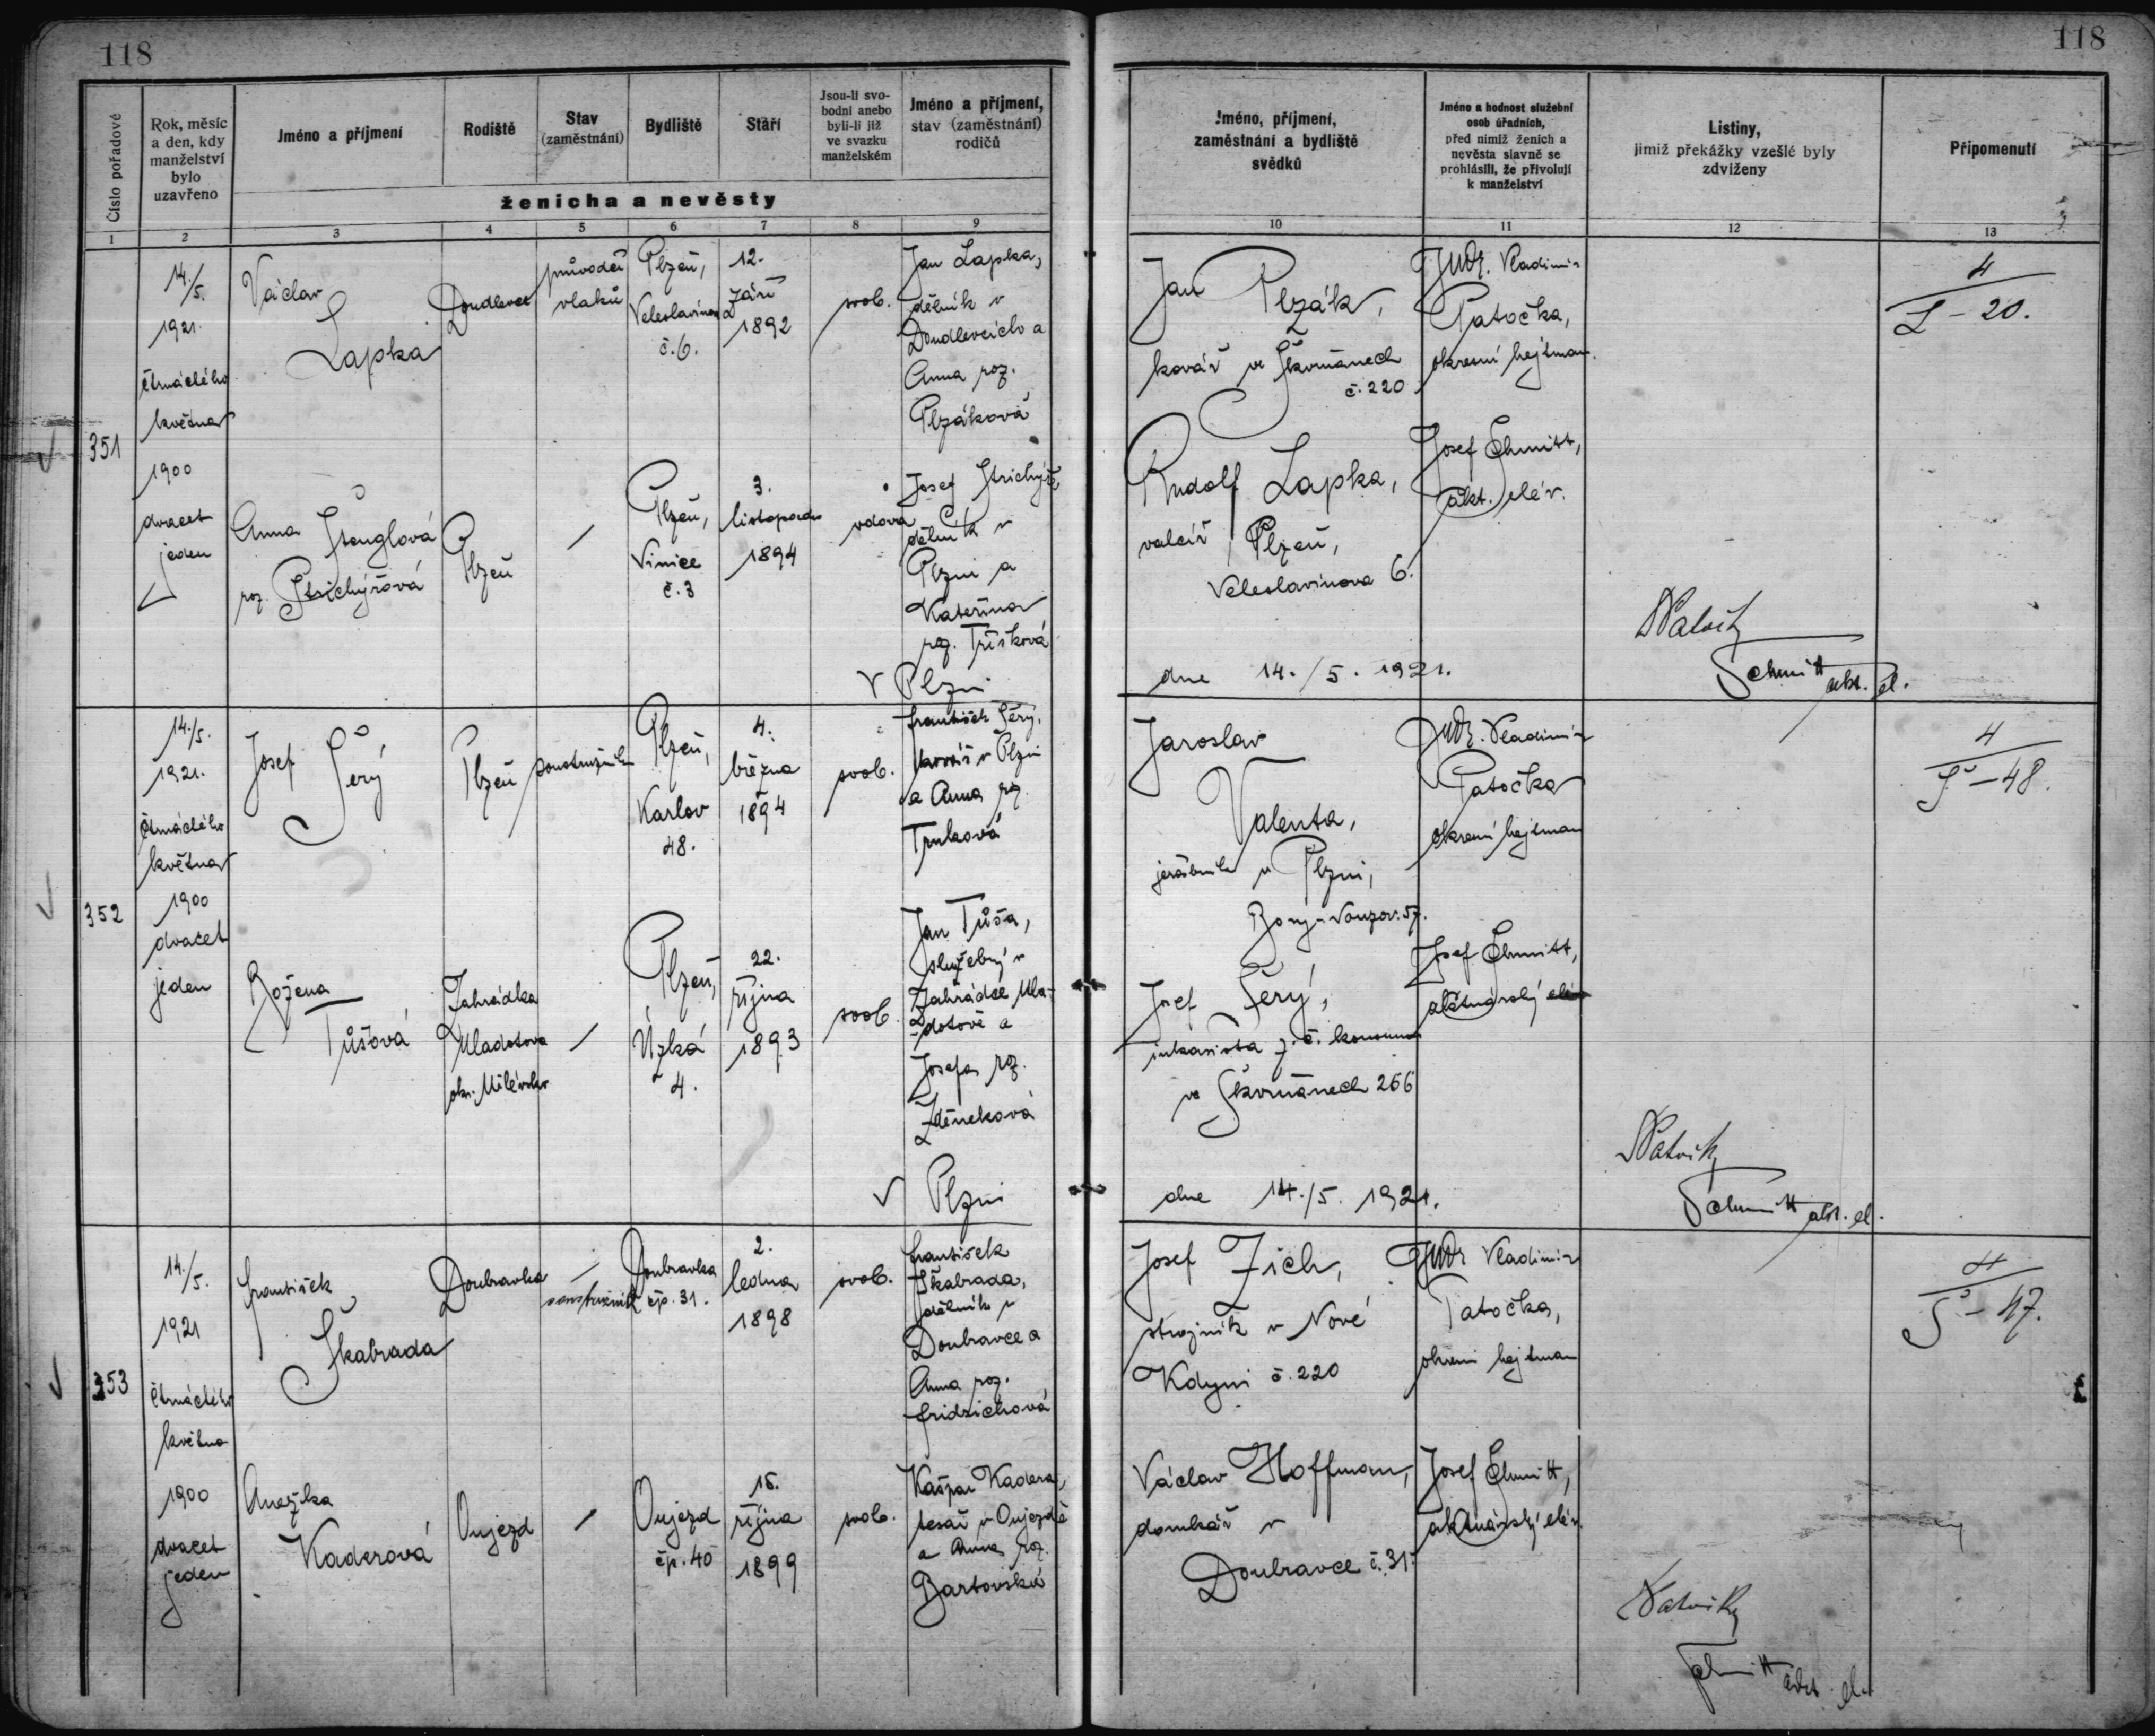 118
118
Číslo pořadové
Rok, měsíc
a den, kdy
manželství
bylo
uzavřeno
Jméno a příjmení
Rodiště
Stav
(zaměstnání)
Bydliště
Stáří
Jsou-li svo-
bodni anebo
byli-li již
ve svazku
manželském
Jméno a příjmení,
stav (zaměstnání)
rodičů
ženicha a nevěsty
Jméno, příjmení,
zaměstnání a bydliště
svědků
Jméno a hodnost služební
osob úřadních,
před nimiž ženich a
nevěsta slavně se
prohlásili, že přivolují
k manželství
Listiny,
jimiž překážky vzešlé byly
zdviženy
Připomenutí
1
2
3
4
5
6
7
8
9
10
11
12
13
351
14./5.
1921.
čtrnáctého
května
1900
dvacet
jeden
Václav
Lapka
Doudlevce
průvodčí
vlaků
Plzeň,
Veleslavínova
č. 6.
12.
září
1892
svob.
Jan Lapka,
dělník v
Doudlevcích a
Anna roz.
Plzáková
Anna Štenglová
roz.
Plzeň
/
Plzeň,
Vinice
č. 3
3.
listopadu
1894
vdova
Josef
dělník v
Plzni a
Kateřina
roz. Třísková
V Plzni
Jan Plzák,
kovář ve Škvrňanech
č. 220
Rudolf Lapka,
valcíř Plzeň,
Veleslavínova 6.
dne 14./5. 1921.
JUDr. Vladimír
Patočka,
okresní hejtman.
Josef Schmitt,
akt. elév.
Schmitt akt. el.
4
L - 20.
352
14./5.
1921.
čtrnáctého
května
1900
dvacet
jeden
Josef Šerý
Plzeň
soustružník
Plzeň,
Karlov
48.
4.
března
1894
svob.
František Šerý,
kovář v Plzni
a Anna roz.
Trnková
Božena
Tůšová
Zahrádka
Mladotova
okr. Milévsko
/
Plzeň,
Úzká
4.
22.
října
1893
svob.
Jan Tůša,
služebný v
Zahrádce Mla-
dotově a
Josefa roz.
Zděneková
V Plzni
Jaroslav
Valenta,
jeřábník v Plzni,
Bory
Josef Šerý,
inkasista z. č. konsumu
ve Škvrňanech 266
dne 14./5. 1921.
JUDr. Vladimír
Patočka
okresní hejtman
Josef Schmitt,
aktuárský elév
Schmitt akt. el.
4
Š - 48.
353
14./5.
1921
čtrnáctého
května
1900
dvacet
jeden
František
Škabrada
Doubravka
soustružník
Doubravka
čp. 31.
2.
ledna
1898
svob.
František
Škabrada,
dělník v
Doubravce a
Anna roz.
Fridrichová
Anežka
Kaderová
Oujezd
/
Oujezd
čp. 40
15.
října
1899
svob.
Kašpar Kadera,
tesař v Oujezdě
a Anna roz.
Josef Zich,
strojník v Nové
Kdyni č. 220
Václav Hoffman,
domkář v
Doubravce č. 31.
JUDr Vladimír
Patočka,
okresní hejtman
Josef Schmitt,
aktuárský elév.
Schmitt akt. el.
4
Š - 47.